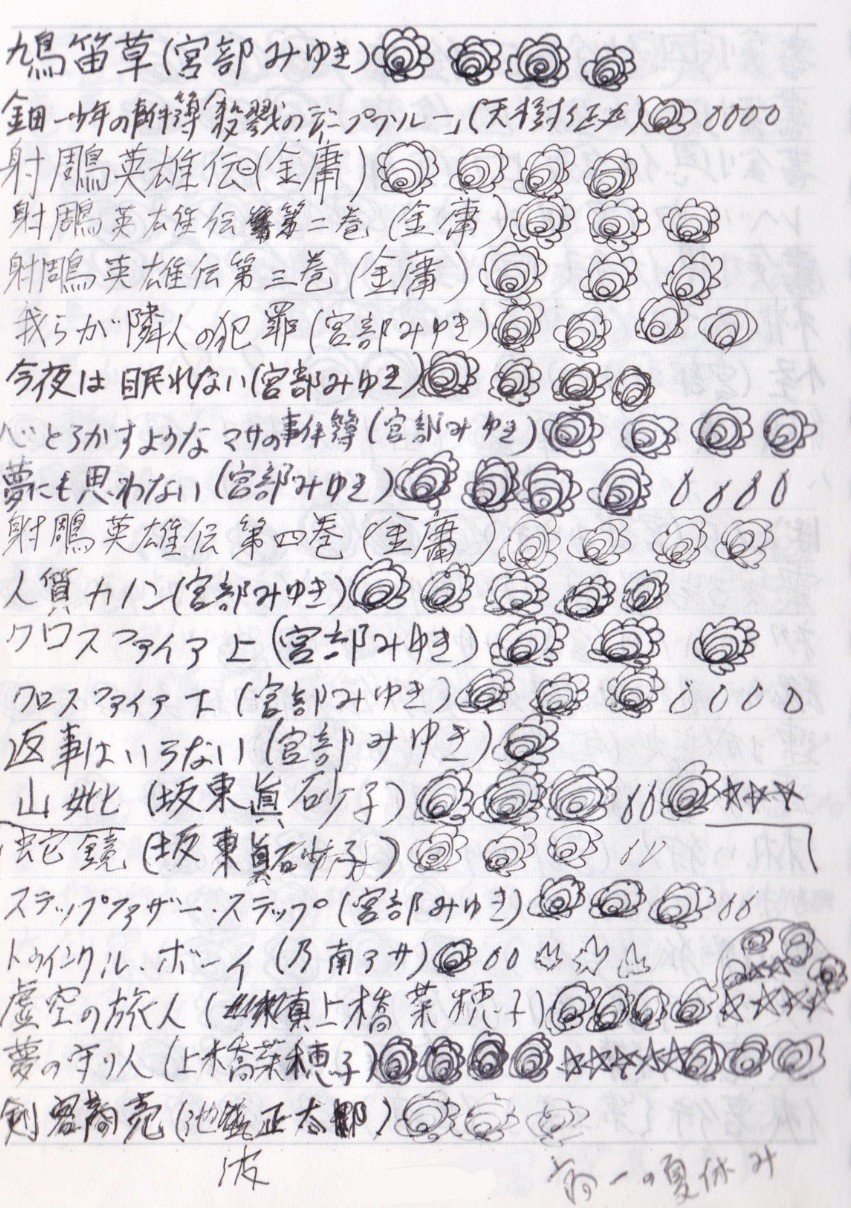 鳩笛草(宮部みゆき)
金田一少年の事件簿 殺戮のディープブルー」(天樹征丸)
射鵰英雄伝一(金庸)
射鵰英雄伝 第二巻(金庸)
射鵰英雄伝第三巻(金庸)
我らが隣人の犯罪(宮部みゆき)
今夜は眠れない(宮部みゆき)
心とろかすような マサの事件簿(宮部みゆき)
夢にも思わない(宮部みゆき)
射鵰英雄伝第四巻(金庸)
人質カノン(宮部みゆき)
クロスファイア上(宮部みゆき)
クロスファイア下(宮部みゆき)
返事はいらない(宮部みゆき)
山妣(坂東眞砂子)☆☆☆
蛇鏡(坂東眞砂子)
ステップファザー・ステップ(宮部みゆき)
トゥインクル・ボーイ(乃南アサ)
虚空の旅人(上橋菜穂子)☆☆☆☆
夢の守り人(上橋菜穂子)☆☆☆☆☆
剣客商売(池波正太郎)
波
高一の夏休み